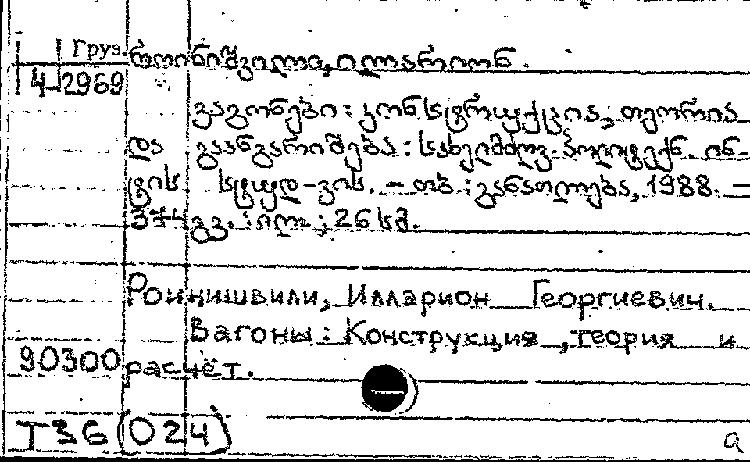 Груз. როინიშვილი, ილარიონ.
4-2969
ვაგონები : კონსტრუქცია, თეორია
და გაანგარიშება : სახელმძღვ. პოლიტექნ. ინ-
ტის სტუდ-ვის. – თბ. : განათლება, 1988. –
გვ. : ილ. ; 26 სმ.
Роинишвили, Илларион Георгиевич.
Вагоны : Конструкция, теория и
90300 расчёт.
T36(024)
a